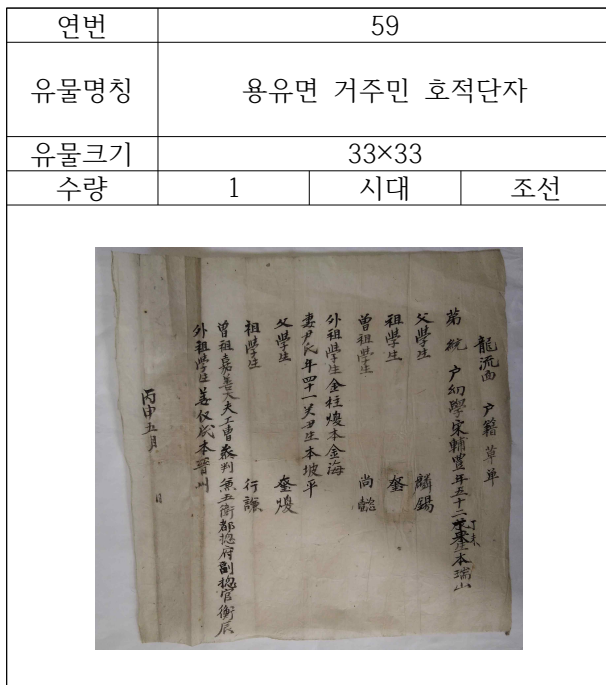 연번 59
유물명칭 용유면 거주민 호적단자
유물크기 33×33
수량 1 시대 조선
龍流面 户籍草单
第 統 户幼學宋輔豊年五十二 生本瑞山
父學生 麟錫
祖學生 奎
曾祖學生 尚懿
外祖學生金柱煖本金海
妻尹氏年四十一 生本坡平
父學生 奎煖
祖學生 行謙
曾祖嘉善大夫工曹叅判兼五衛都摠府副摠官衡辰
外祖學生姜仪 本晉州
丙申五月 日